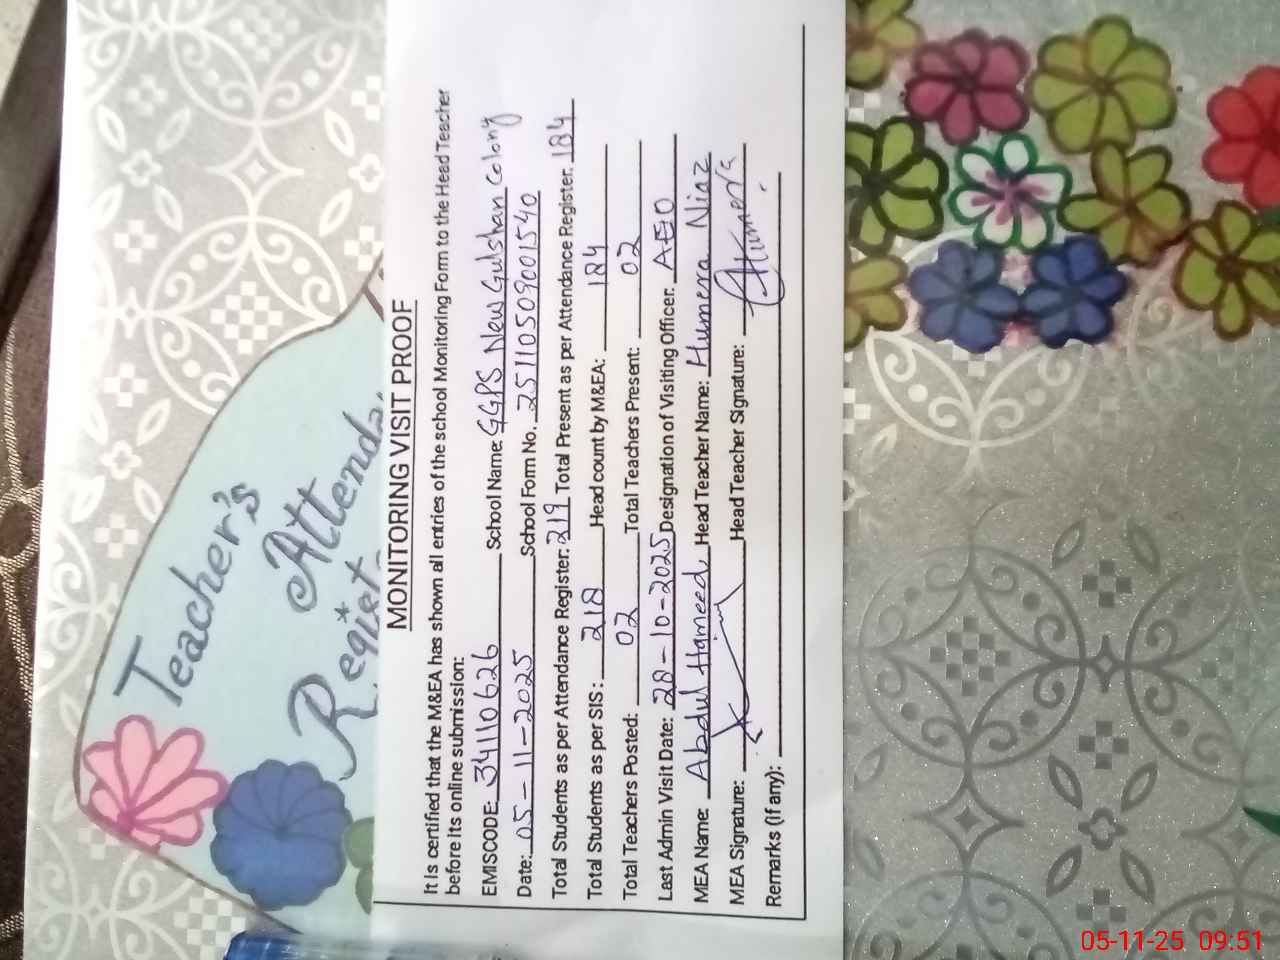 Teacher's
Attenda
Regist
MONITORING VISIT PROOF
It is certified that the M&EA has shown all entries of the school Monitoring Form to the Head Teacher
before its online submission:
EMISCODE: 34110626 School Name: GGPS New Gulshan Colony
Date: 05-11-2025 School Form No. 25110509001540
Total Students as per Attendance Register: 219 Total Present as per Attendance Register. 184
Total Students as per SIS: 218 Head count by M&EA: 184
Total Teachers Posted: 02 Total Teachers Present: 02
Last Admin Visit Date: 28-10-2025 Designation of Visiting Officer. AEO
MEA Name: Abdul Hameed Head Teacher Name: Humera Niaz
MEA Signature: Head Teacher Signature: Humera
Remarks (if any):
05-11-25 09:51